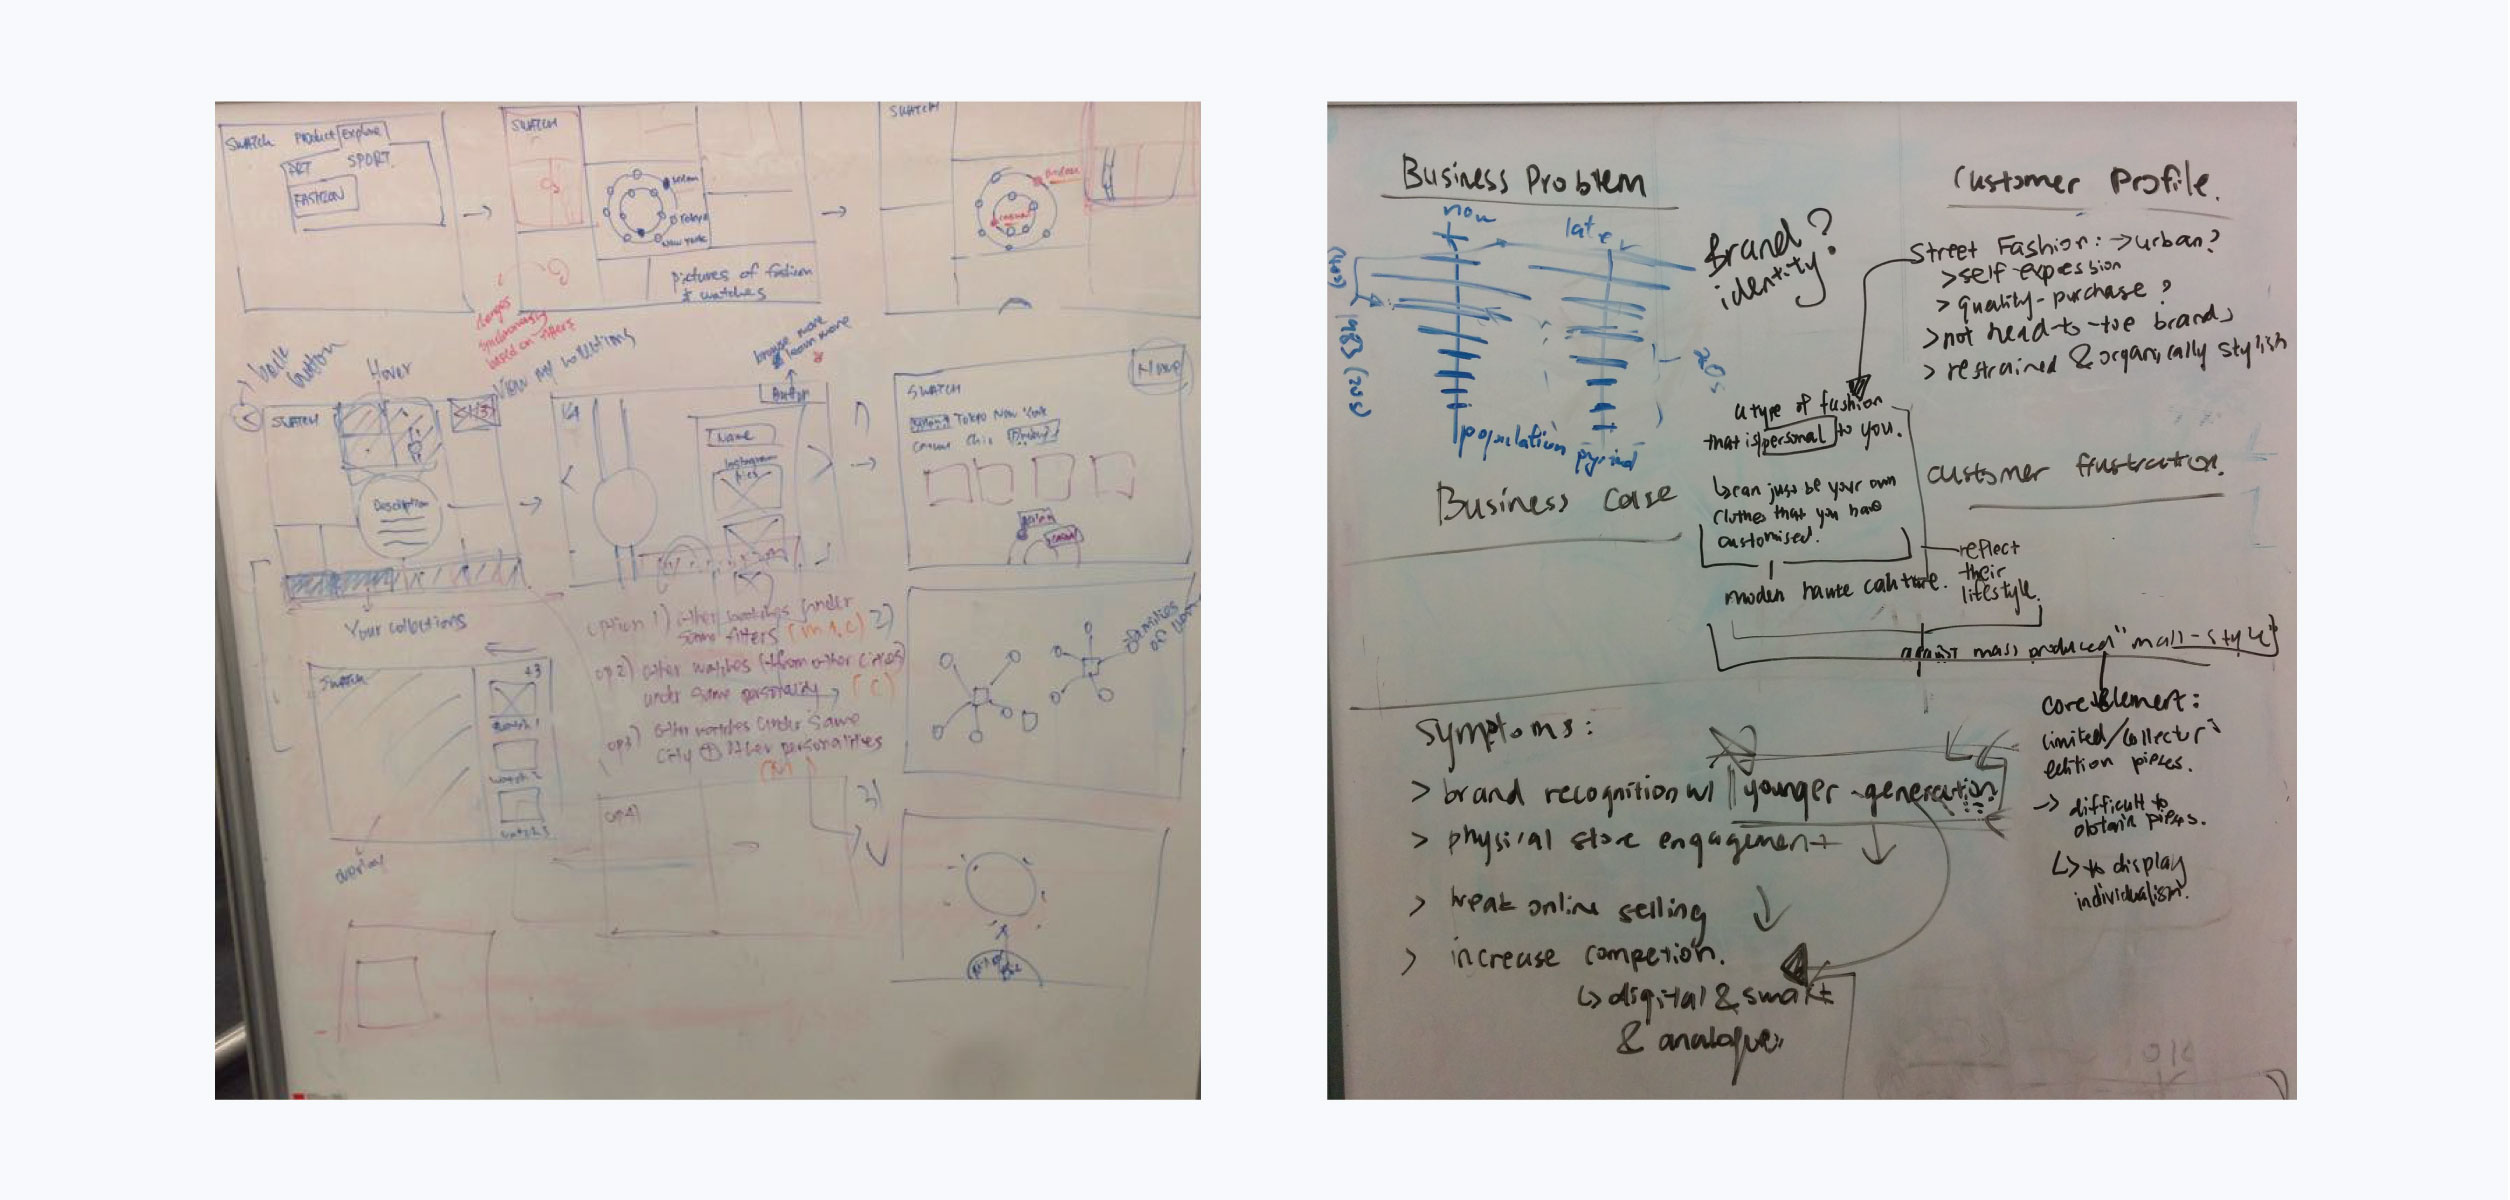 SWATCH Product Explore
ART SPORT
FASHION
SWATCH
Tokyo
New York
pictures of fashion
& watches
SWATCH
changes
synchronously
based on filters
back
button
Hover
View my collections
SWATCH
Description
Your collections
browse more
learn more
Button
Name
Instagram
pics
SWATCH
Tokyo New York
casual chic
option 1) other watches under
same filters
2)
op2) other watches (from other cities)
under same personality (C)
op3) other watches under same
city + other personalities
(M)
op4)
3)
SWATCH
+3
watch 1
watch 2
watch 3
overlay
Business Problem
now
later
(40s)
1983 (20s)
20s
population pyrimid
Brand?
identity
Business Case
Customer Profile.
Street Fashion: → urban?
> self expression
> quality-purchase?
> not head-to-toe brands
> restrained & organically stylish
a type of fashion
that is personal to you.
↳ can just be your own
clothes that you have
customised.
customer frustration.
reflect
their
lifestyle.
moden haute cauture.
against mass produced "mall-style"
core element:
limited/collector's
edition pieces.
→ difficult to
obtain pieces.
↳ to display
individualism.
Symptoms:
> brand recognition w/ younger generation
> physical store engagement ↓
> weak online selling ↓
> increase competion.
↳ digital & smart
& analogue.